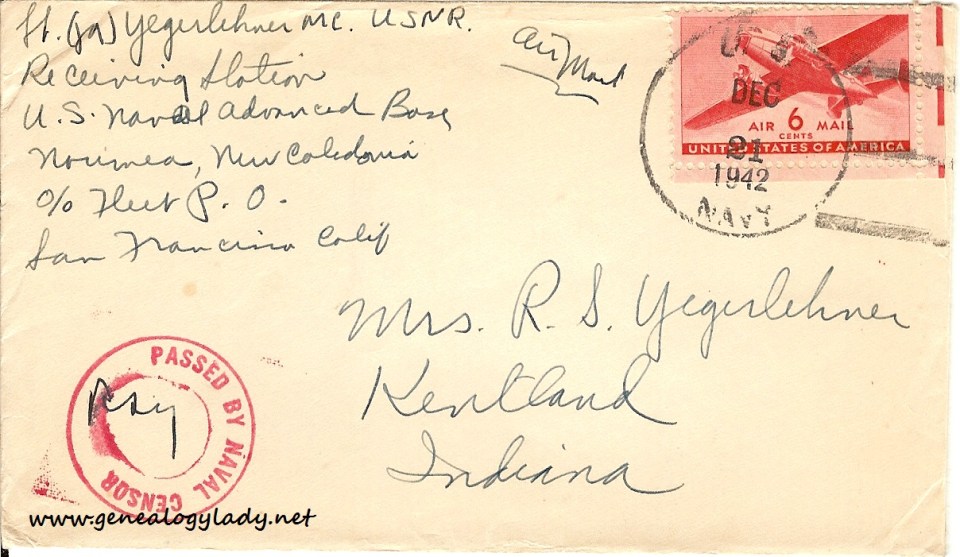 Lt. (jg) Yegerlehner MC. USNR.
Receiving Station
U.S. Naval Advanced Base
Noumea, New Caledonia
c/o Fleet P. O.
San Francisco Calif
Air Mail
U. S.
DEC
21
1942
NAVY
AIR 6 MAIL
CENTS
UNITED STATES OF AMERICA
Mrs. R. S. Yegerlehner
Kentland
Indiana
PASSED BY NAVAL CENSOR
www.genealogylady.net